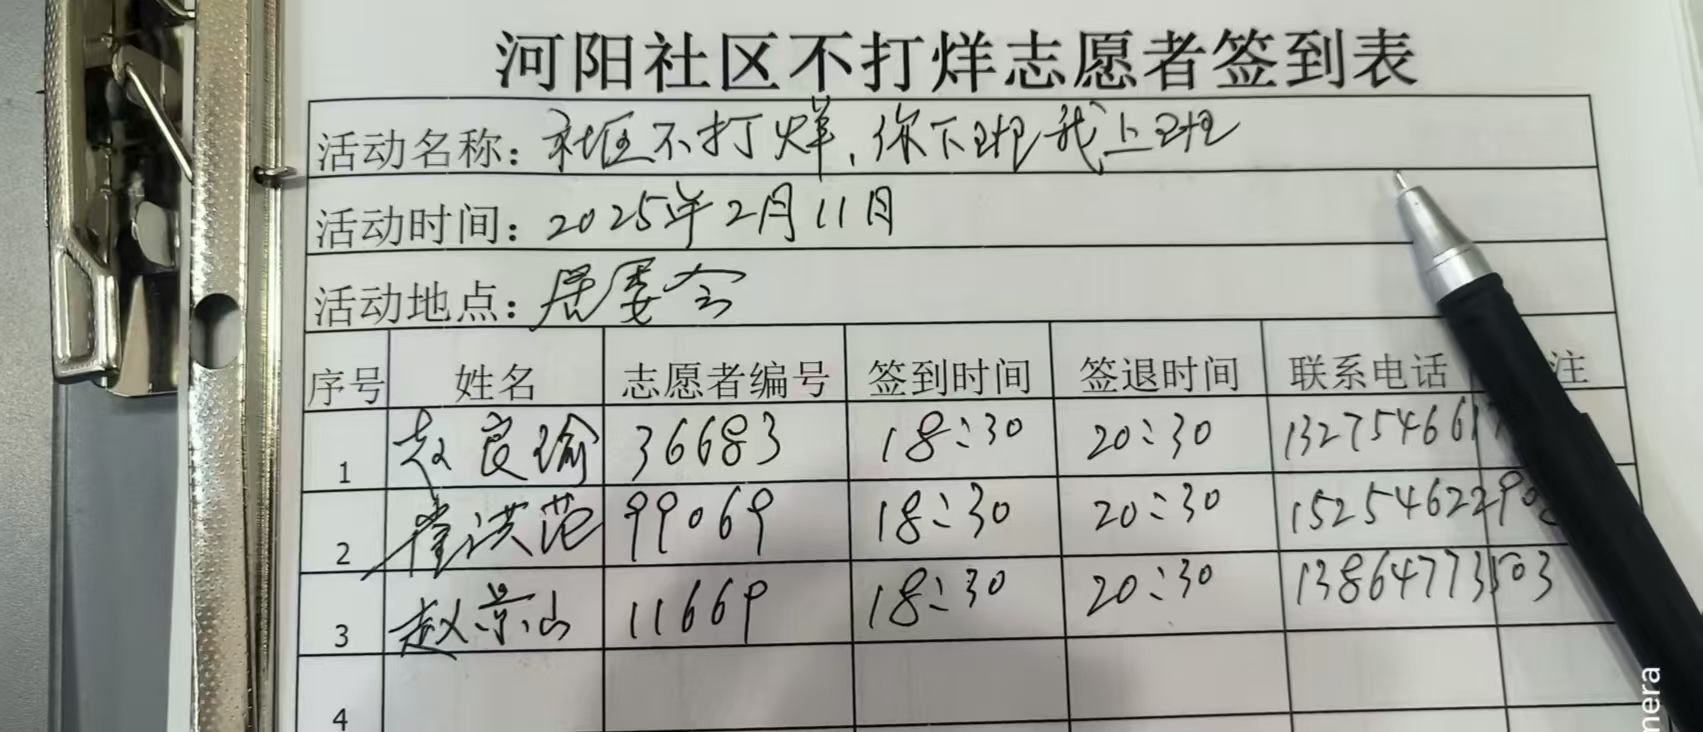 河阳社区不打烊志愿者签到表
活动名称：社区不打烊，你下班我上班
活动时间：2025年2月11日
活动地点：居委会
序号 姓名 志愿者编号 签到时间 签退时间 联系电话 注
1 赵良瑜 36683 18:30 20:30 132754661
2 崔洪范 99069 18:30 20:30 1525462290
3 赵景山 11669 18:30 20:30 13864773503
4
mera